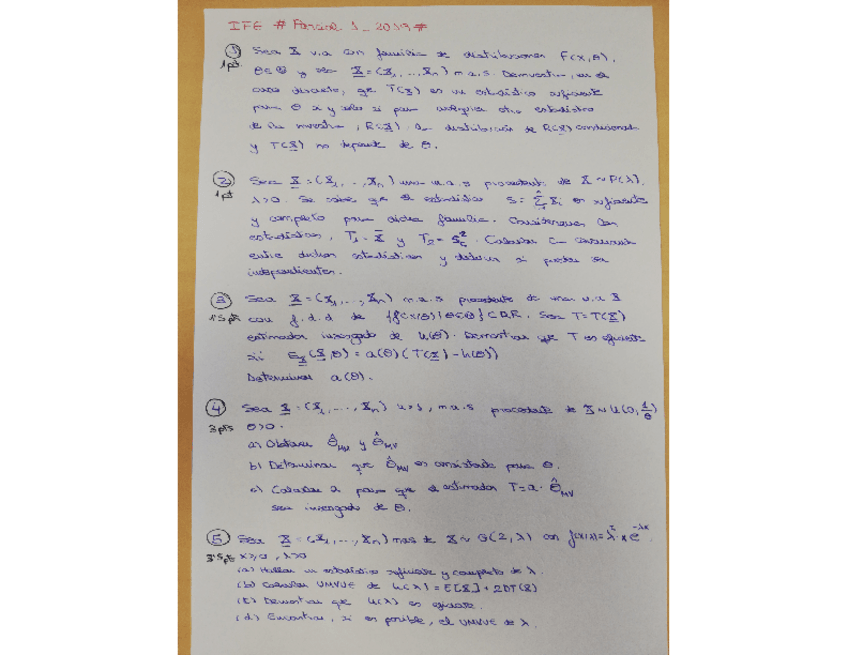 IFE # Parcial 1_2019 #
① Sea X v.a con familia de distribuciones F(x,θ),
1pt. θ∈Θ y sea X=(X₁,...,Xn) m.a.s. Demuestra, en el
caso discreto, que T(X) es un estadístico suficiente
para θ si y solo si para cualquier otro estadístico
de la muestra, R(X), la distribución de R(X) condicionada
y T(X) no depende de θ.
② Sea X=(X₁,...,Xn) una m.a.s procedente de X~P(λ),
1pt λ>0. Se sabe que el estadístico S=Σxi es suficiente
y completo para dicha familia. Considérense los
estadísticos, T₁=X̄ y T₂=Sc². Calcular la covarianza
entre dichos estadísticos y deducir si pueden ser
independientes.
③ Sea X=(X₁,...,Xn) m.a.s procedente de una v.a X
1'5 pts con f.d.d de {f(x|θ)|θ∈Θ} CDR. Sea T=T(X)
estimador insesgado de h(θ). Demostrar que T es eficiente
sii Σ(X,θ)=a(θ)(T(X)-h(θ))
Determinar a(θ).
④ Sea X=(X₁,...,Xn) n>1, m.a.s procedente de X~U(0,1/θ)
3pts θ>0.
a) Obtener θ̂MM y θ̂MV
b) Determinar que θ̂MV es consistente para θ.
c) Calcular a para que el estimador T=a·θ̂MV
sea insesgado de θ.
⑤ Sea X=(X₁,...,Xn) mas de X~G(2,λ) con f(x|λ)=λ²·x e^-λx
3'5pt x≥0, λ>0
(a) Hallar un estadístico suficiente y completo de λ.
(b) Calcular UMVUE de h(λ)=E[X]+2DT(X)
(c) Demostrar que h(λ) es eficiente.
(d) Encontrar, si es posible, el UMVUE de λ.